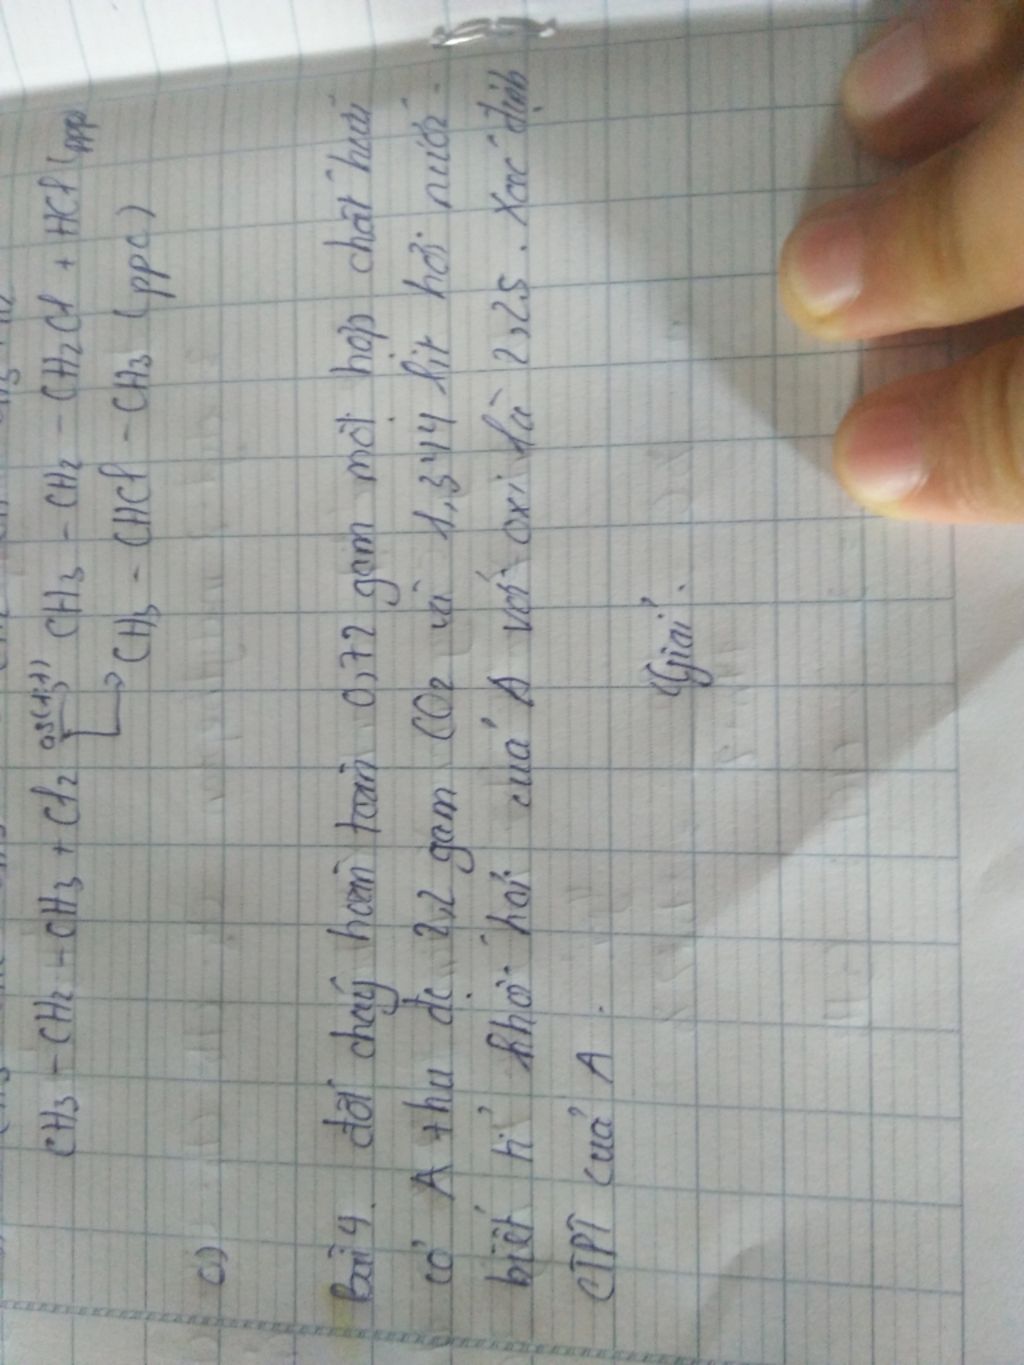 CH3 - CH2 - CH3 + Cl2 as(1:1) CH3 - CH2 - CH2Cl + HCl (ppp
CH3 - CHCl - CH3 (ppc)
c)
bài 4. đốt cháy hoàn toàn 0,72 gam một hợp chất hữu
cơ A thu đc 2,2 gam CO2 và 1,344 lít hơi nước.
biết tỉ khối hơi của A với oxi là 2,25. Xác định
CTPT của A.
Giải.